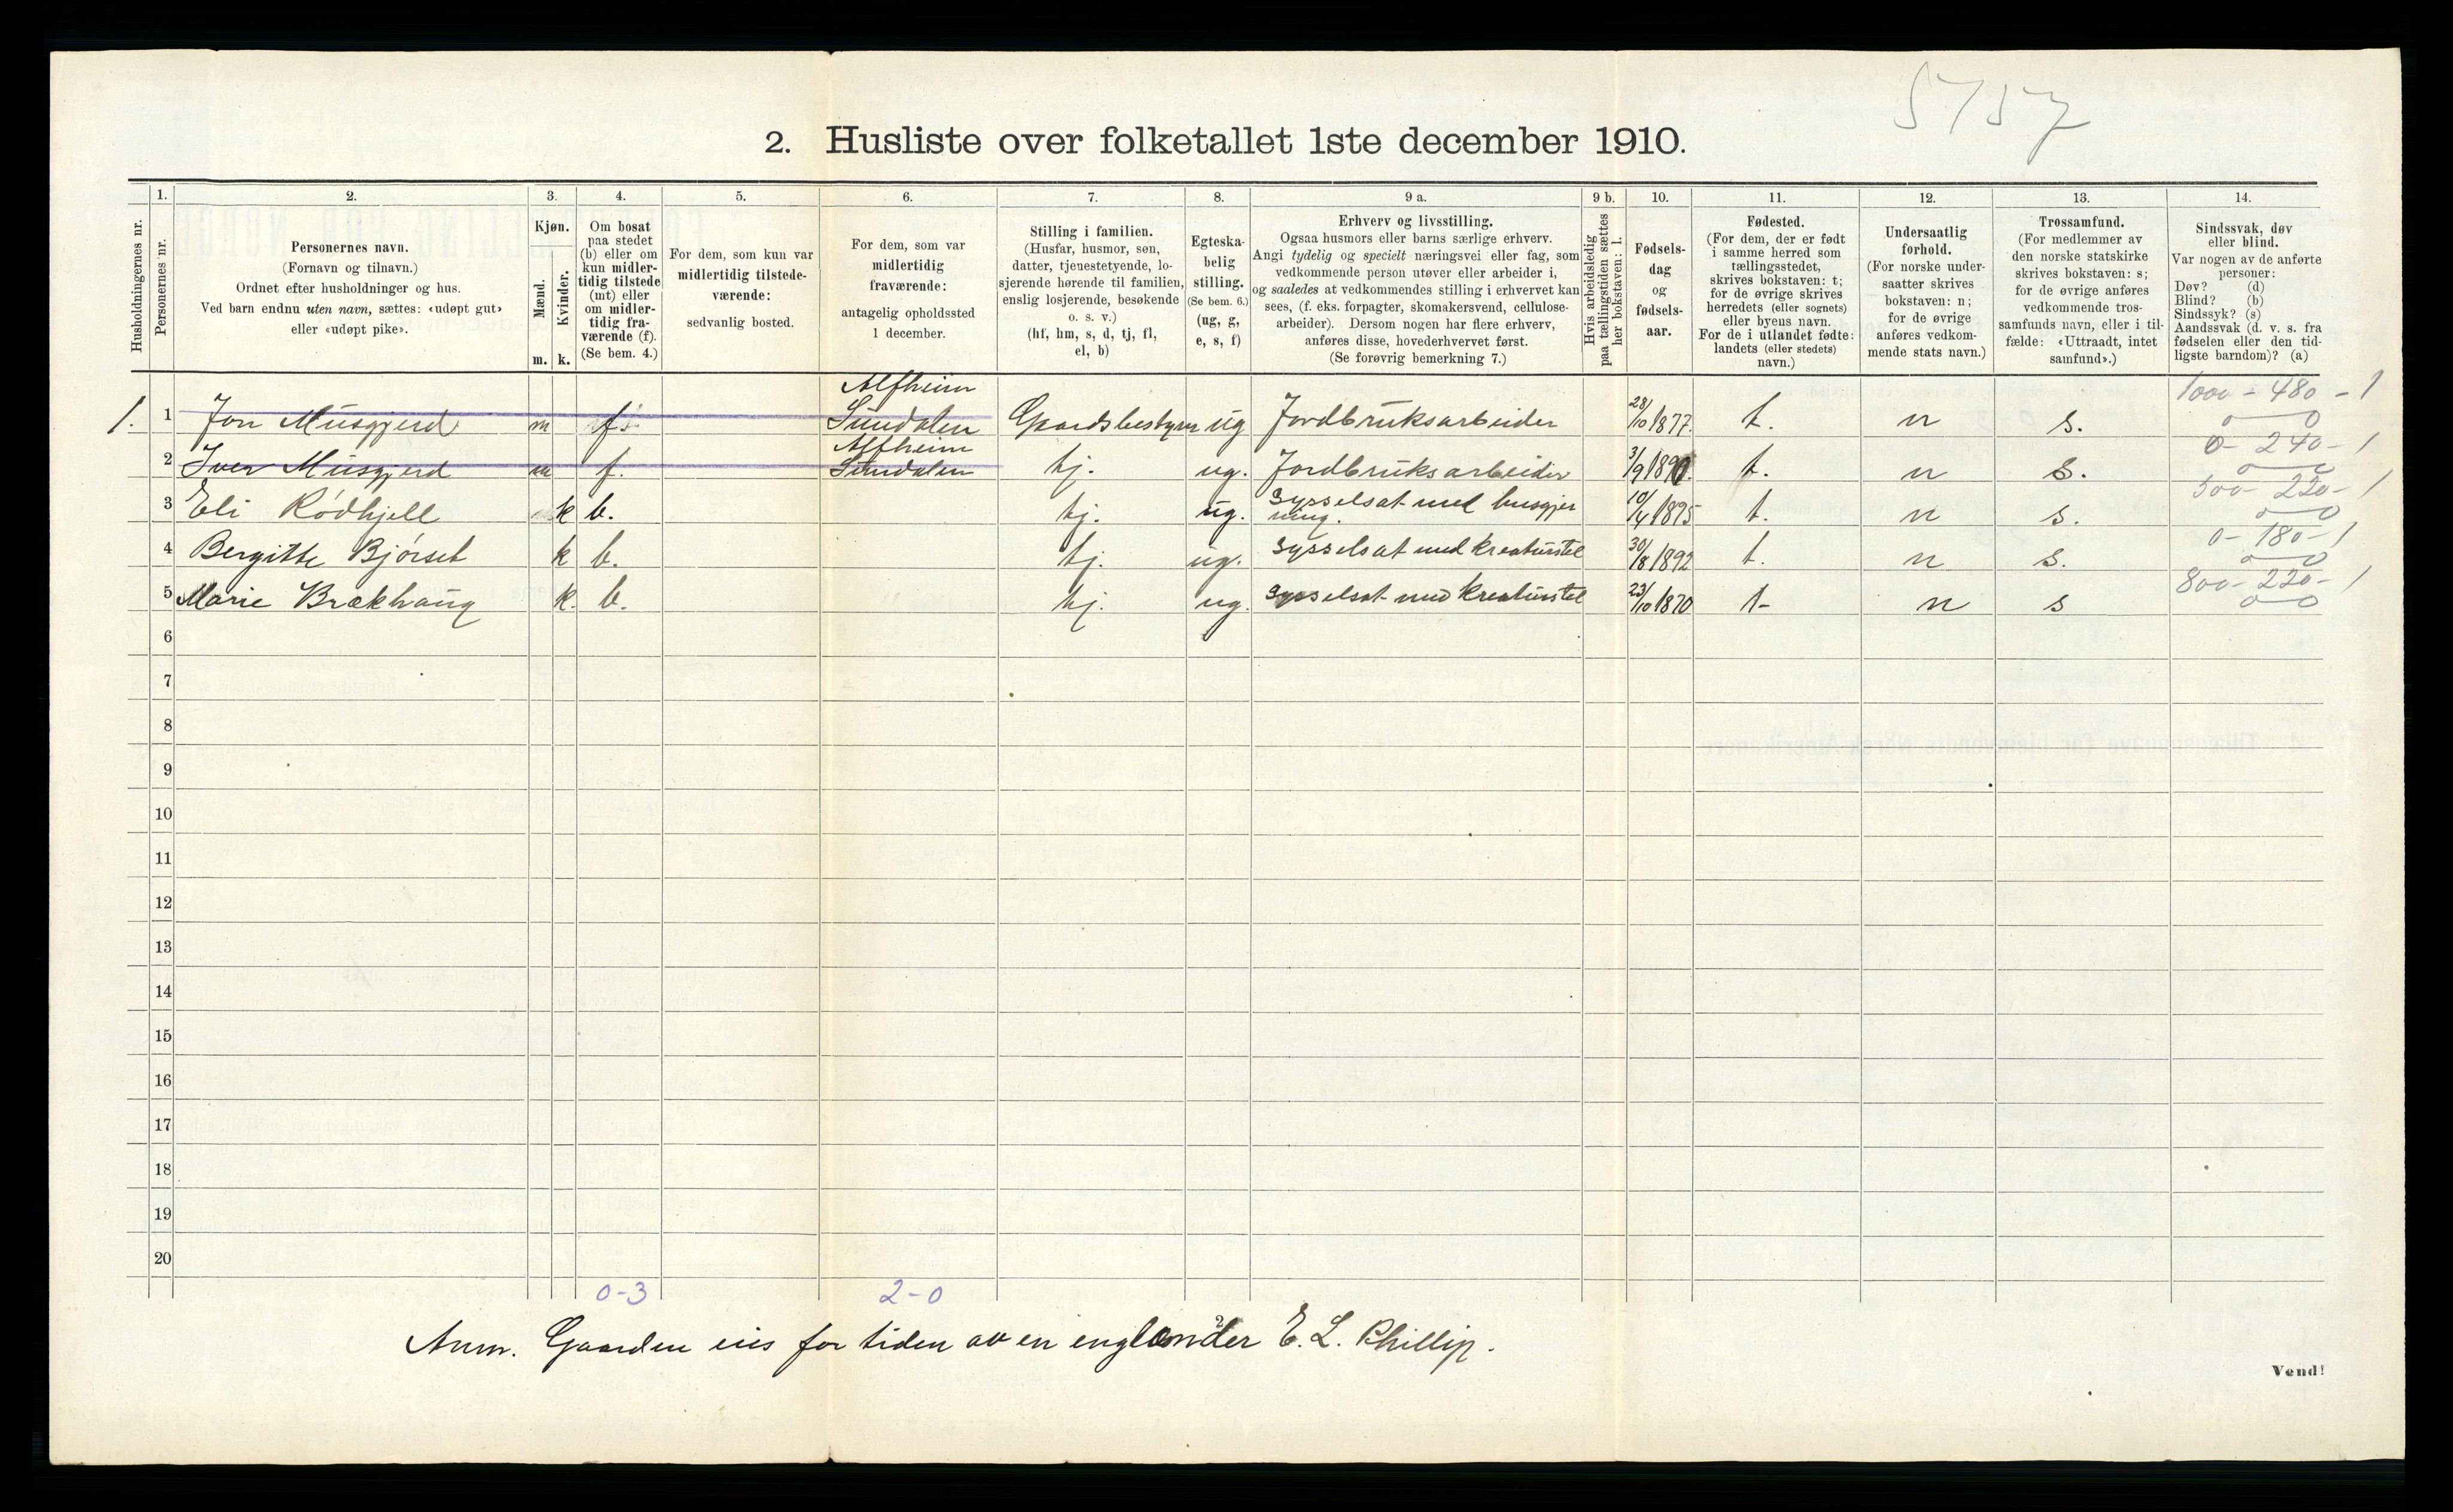 5757
2. Husliste over folketallet 1ste december 1910.
Husholdningernes nr.
1.
Personernes nr.
2.
Personernes navn.
(Fornavn og tilnavn.)
Ordnet efter husholdninger og hus.
Ved barn endnu uten navn, sættes: «udøpt gut»
eller «udøpt pike».
3.
Kjøn.
Mænd.
Kvinder.
m. k.
4.
Om bosat
paa stedet
(b) eller om
kun midler-
tidig tilstede
(mt) eller
om midler-
tidig fra-
værende (f).
(Se bem. 4.)
5.
For dem, som kun var
midlertidig tilstede-
værende:
sedvanlig bosted.
6.
For dem, som var
midlertidig
fraværende:
antagelig opholdssted
1 december.
7.
Stilling i familien.
(Husfar, husmor, søn,
datter, tjenestetyende, lo-
sjerende hørende til familien,
enslig losjerende, besøkende
o. s. v.)
(hf, hm, s, d, tj, fl,
el, b)
8.
Egteska-
belig
stilling.
(Se bem. 6.)
(ug, g,
e, s, f)
9 a.
Erhverv og livsstilling.
Ogsaa husmors eller barns særlige erhverv.
Angi tydelig og specielt næringsvei eller fag, som
vedkommende person utøver eller arbeider i,
og saaledes at vedkommendes stilling i erhvervet kan
sees, (f. eks. forpagter, skomakersvend, cellulose-
arbeider). Dersom nogen har flere erhverv,
anføres disse, hovederhvervet først.
(Se forøvrig bemerkning 7.)
9 b.
Hvis arbeidsledig
paa tællingstiden sættes
her bokstaven: l.
10.
Fødsels-
dag
og
fødsels-
aar.
11.
Fødested.
(For dem, der er født
i samme herred som
tællingsstedet,
skrives bokstaven: t;
for de øvrige skrives
herredets (eller sognets)
eller byens navn.
For de i utlandet fødte:
landets (eller stedets)
navn.)
12.
Undersaatlig
forhold.
(For norske under-
saatter skrives
bokstaven: n;
for de øvrige
anføres vedkom-
mende stats navn.)
13.
Trossamfund.
(For medlemmer av
den norske statskirke
skrives bokstaven: s;
for de øvrige anføres
vedkommende tros-
samfunds navn, eller i til-
fælde: «Uttraadt, intet
samfund».)
14.
Sindssvak, døv
eller blind.
Var nogen av de anførte
personer:
Døv? (d)
Blind? (b)
Sindssyk? (s)
Aandssvak (d. v. s. fra
fødselen eller den tid-
ligste barndom)? (a)
Alfheim 1000 - 480 - 1
1. 1 Jon Musgjerd m f. Sundalen Gaardsbestyrer ug Jordbruksarbeider 28/10 1877. t. n s. 0 0
Alfheim 0 - 240 - 1
2 Iver Musgjerd m f. Sundalen tj. ug. Jordbruksarbeider 3/9 1890. t. n s. 0 0
sysselsat med husgjer 500 - 220 - 1
3 Eli Rödhjell k b. tj. ug. ning. 10/4 1895 t. n s. 0 0
0 - 180 - 1
4 Bergitte Bjørset k b. tj. ug. sysselsat med kreaturstel 30/8 1892 t. n s. 0 0
800 - 220 - 1
5 Marie Brækhaug k. b. tj. ug. sysselsat med kreaturstel 23/10 1870 t- n s 0 0
6
7
8
9
10
11
12
13
14
15
16
17
18
19
20
0-3 2-0
Anm. Gaarden eies for tiden av en englander E. L. Phillip.
Vend!